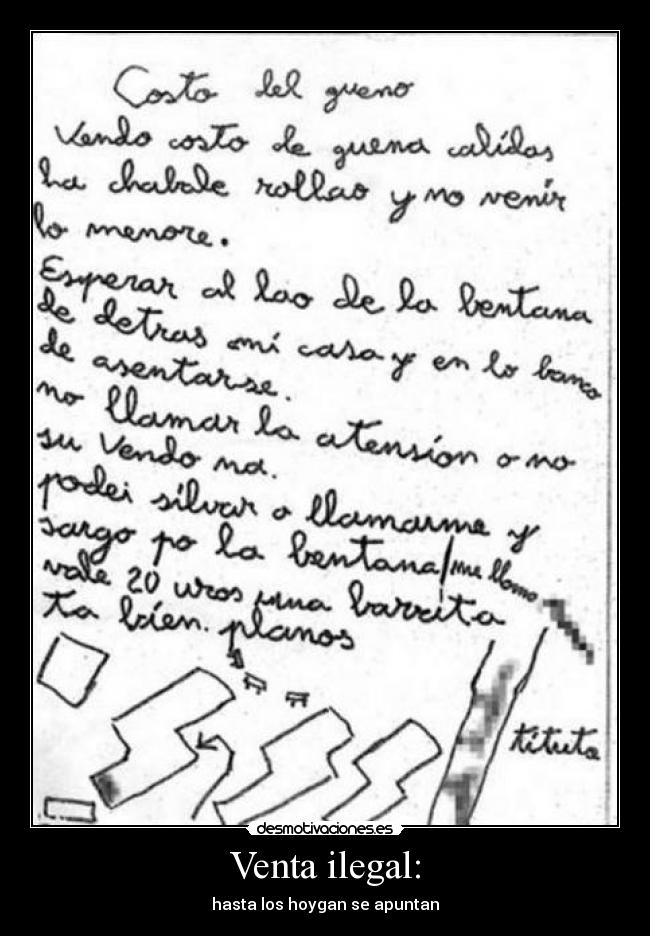 Costo del gueno
Vendo costo de guena calidas
ha chabale rollao y no venir
lo menore.
Esperar al lao de la bentana
de detras mi casa y en lo banco
de asentarse.
no llamar la atension o no
su Vendo na.
podei silvar o llamarme y
sargo po la bentana/me llamo
vale 20 uros una barrita
ta bien. planos
tituta
desmotivaciones.es
Venta ilegal:
hasta los hoygan se apuntan